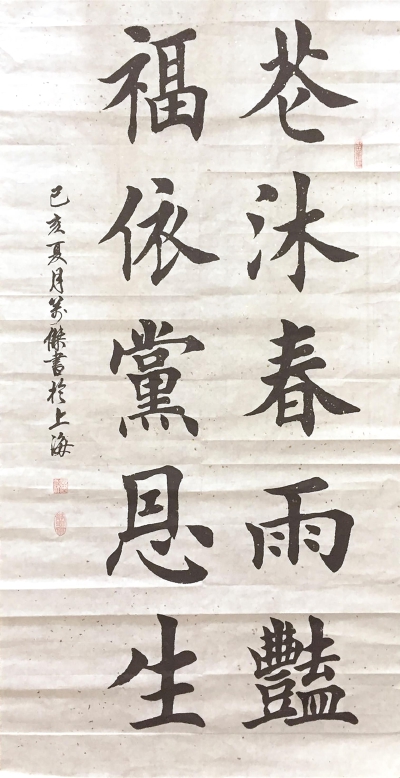 花沐春雨豔
福依黨恩生
己亥夏月万傑書於上海